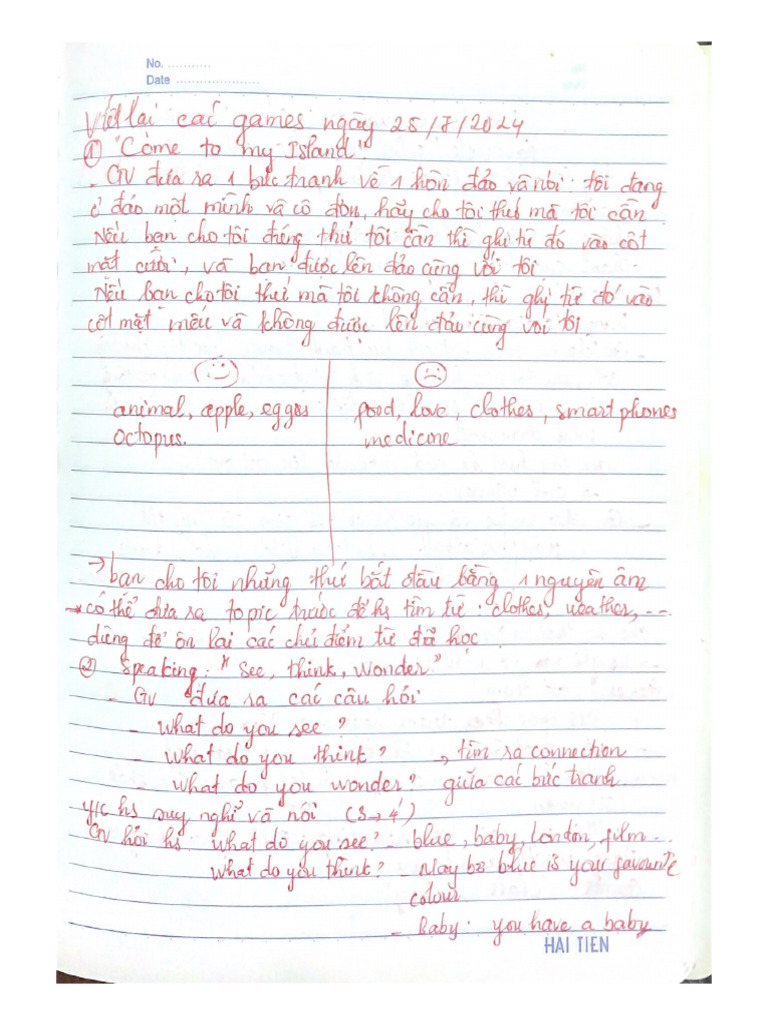 No. ...........
Date .....................
Viết lại các games ngày 25/7/2024
① "Come to my Island"
- GV đưa ra 1 bức tranh vẽ 1 hòn đảo và nói: tôi đang
ở đảo một mình và cô đơn, hãy cho tôi thứ mà tôi cần
Nếu bạn cho tôi đúng thứ tôi cần thì ghi từ đó vào cột
mặt cười, và bạn được lên đảo cùng với tôi.
Nếu bạn cho tôi thứ mà tôi không cần, thì ghi từ đó vào
cột mặt mếu và không được lên đảo cùng với tôi.
animal, apple, eggs
food, love, clothes, smart phones
octopus.
medicone
→ bạn cho tôi những thứ bắt đầu bằng 1 nguyên âm
→ có thể đưa ra topic trước để hs tìm từ: clothes, weather, ...
dùng để ôn lại các chủ điểm từ đã học.
② Speaking: "See, think, wonder"
- GV đưa ra các câu hỏi
- What do you see?
- What do you think? → tìm ra connection
- What do you wonder? giữa các bức tranh
y/c hs suy nghĩ và nói (3→4')
GV hỏi hs: What do you see? - blue, baby, London, film...
What do you think? - May be blue is your favourite
colour
- Baby: you have a baby
HAI TIEN